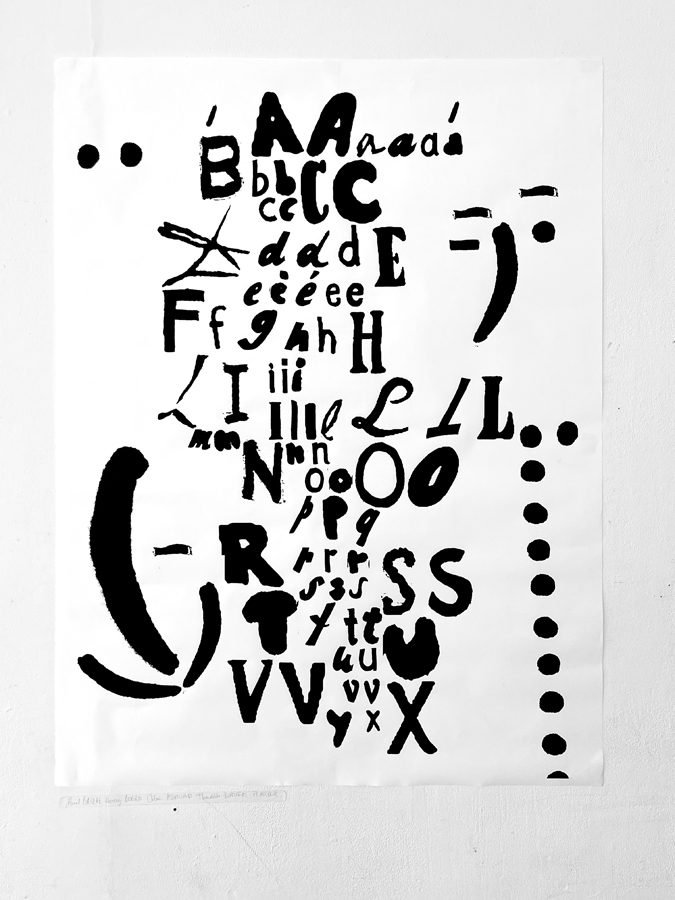 AAaaaá
BbbCC
ccc
dddE
eèéee
Ffghh H
I iii
IIIl L l L
mm
Nnn
ooOO
pPq
RrrrSS
sss
Tttt
uuU
VVvv
yxX